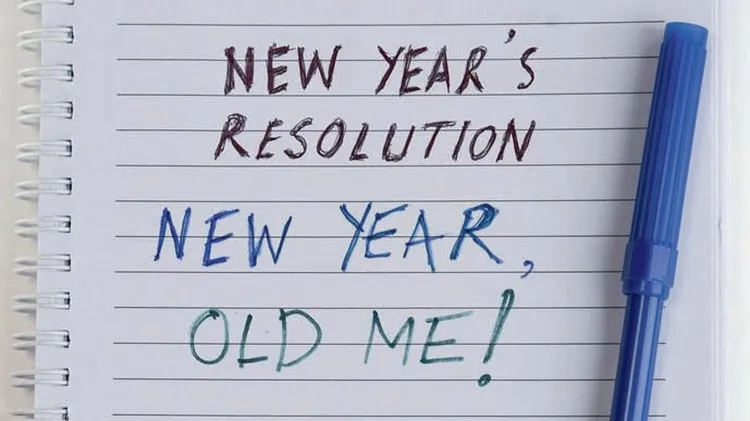 NEW YEAR'S
RESOLUTION
NEW YEAR,
OLD ME!